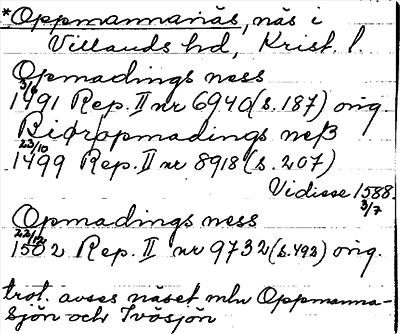 *Oppmannanäs, näs i
Villands hd, Krist. l.
Opmadings ness
3/6
1491 Rep. II nr 6940 (s. 187) orig.
Bidropmadings neß
23/10
1499 Rep. II nr 8918 (s. 207)
Vidisse 1588.
3/7
Opmadings ness
22/12
1502 Rep. II nr 9732 (s. 492) orig.
trol. avses näset mln Oppmanna-
sjön och Ivösjön